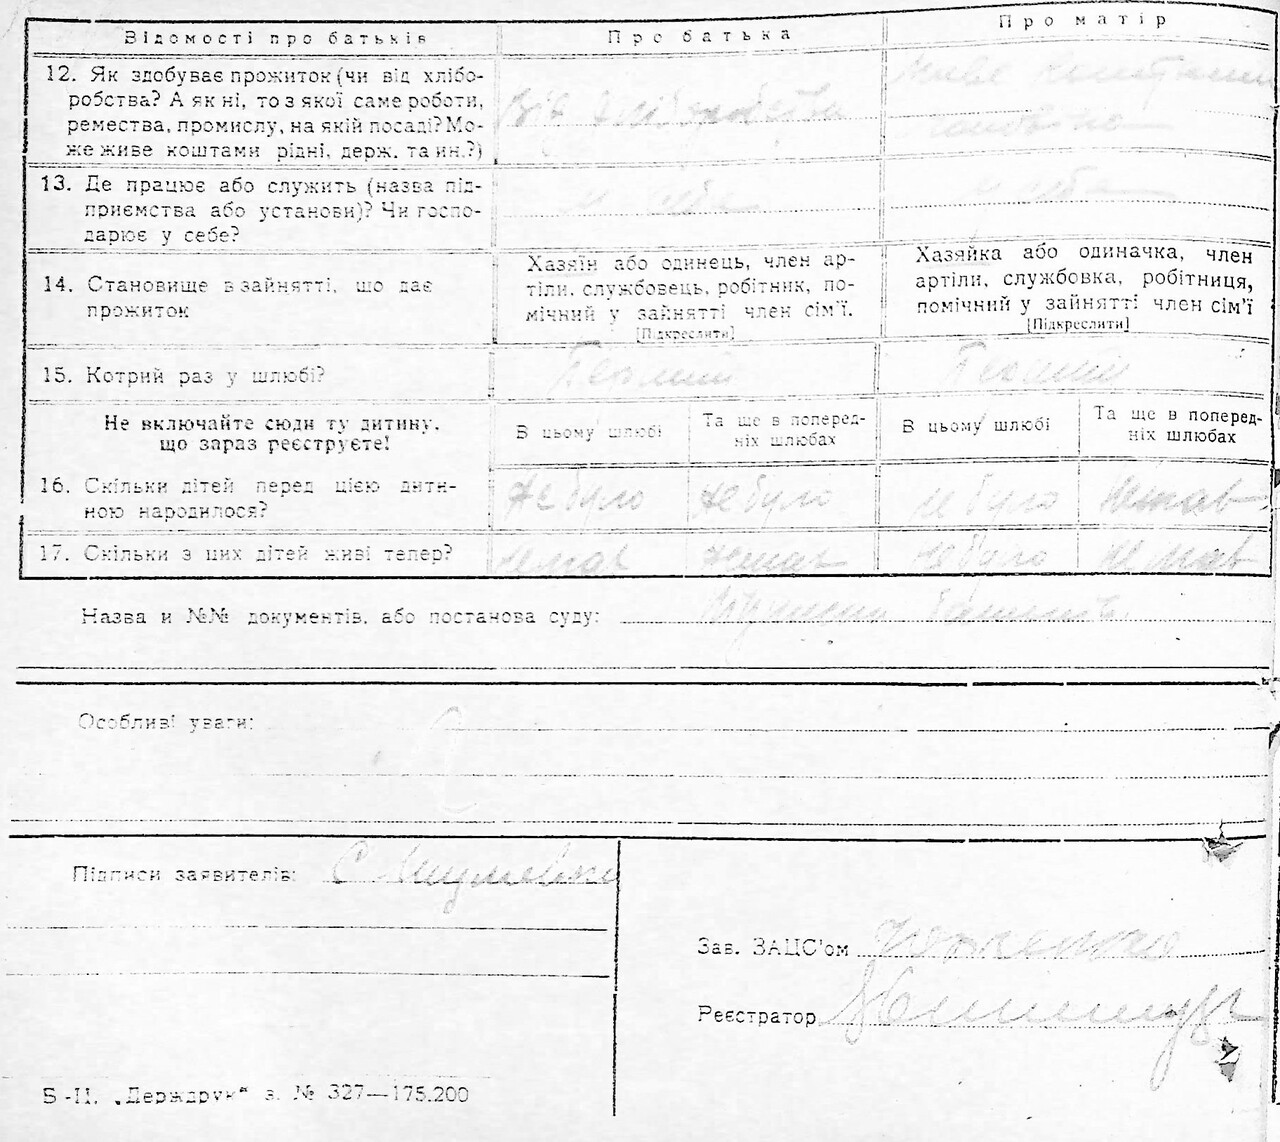 Відомості про батьків
Про батька
Про матір
12. Як здобуває прожиток (чи від хлібо-
робства? А як ні, то з якої саме роботи,
ремества, промислу, на якій посаді? Мо-
же живе коштами рідні, держ. та ин.?)
Від хліборобства
Живе коштами
чоловіка
13. Де працює або служить (назва під-
приємства або установи)? Чи госпо-
дарює у себе?
у себе
у себе
14. Становище в зайнятті, що дає
прожиток
Хазяїн або одинець, член ар-
тіли, службовець, робітник, по-
мічний у зайнятті член сім'ї.
[Підкреслити]
Хазяйка або одиначка, член
артіли, службовка, робітниця,
помічний у зайнятті член сім'ї
[Підкреслити]
15. Котрий раз у шлюбі?
Первий
Первий
Не включайте сюди ту дитину,
що зараз реєструєте!
В цьому шлюбі
Та ще в поперед-
ніх шлюбах
В цьому шлюбі
Та ще в поперед-
ніх шлюбах
16. Скільки дітей перед цією дити-
ною народилося?
не було
не було
не було
Немає
17. Скільки з цих дітей живі тепер?
немає
немає
не було
немає
Назва и №№ документів, або постанова суду:
Особливі уваги:
Підписи заявителів: С
Зав. ЗАЦС'ом
Реєстратор
Б-II. „Держдрук" з. № 327—175.200